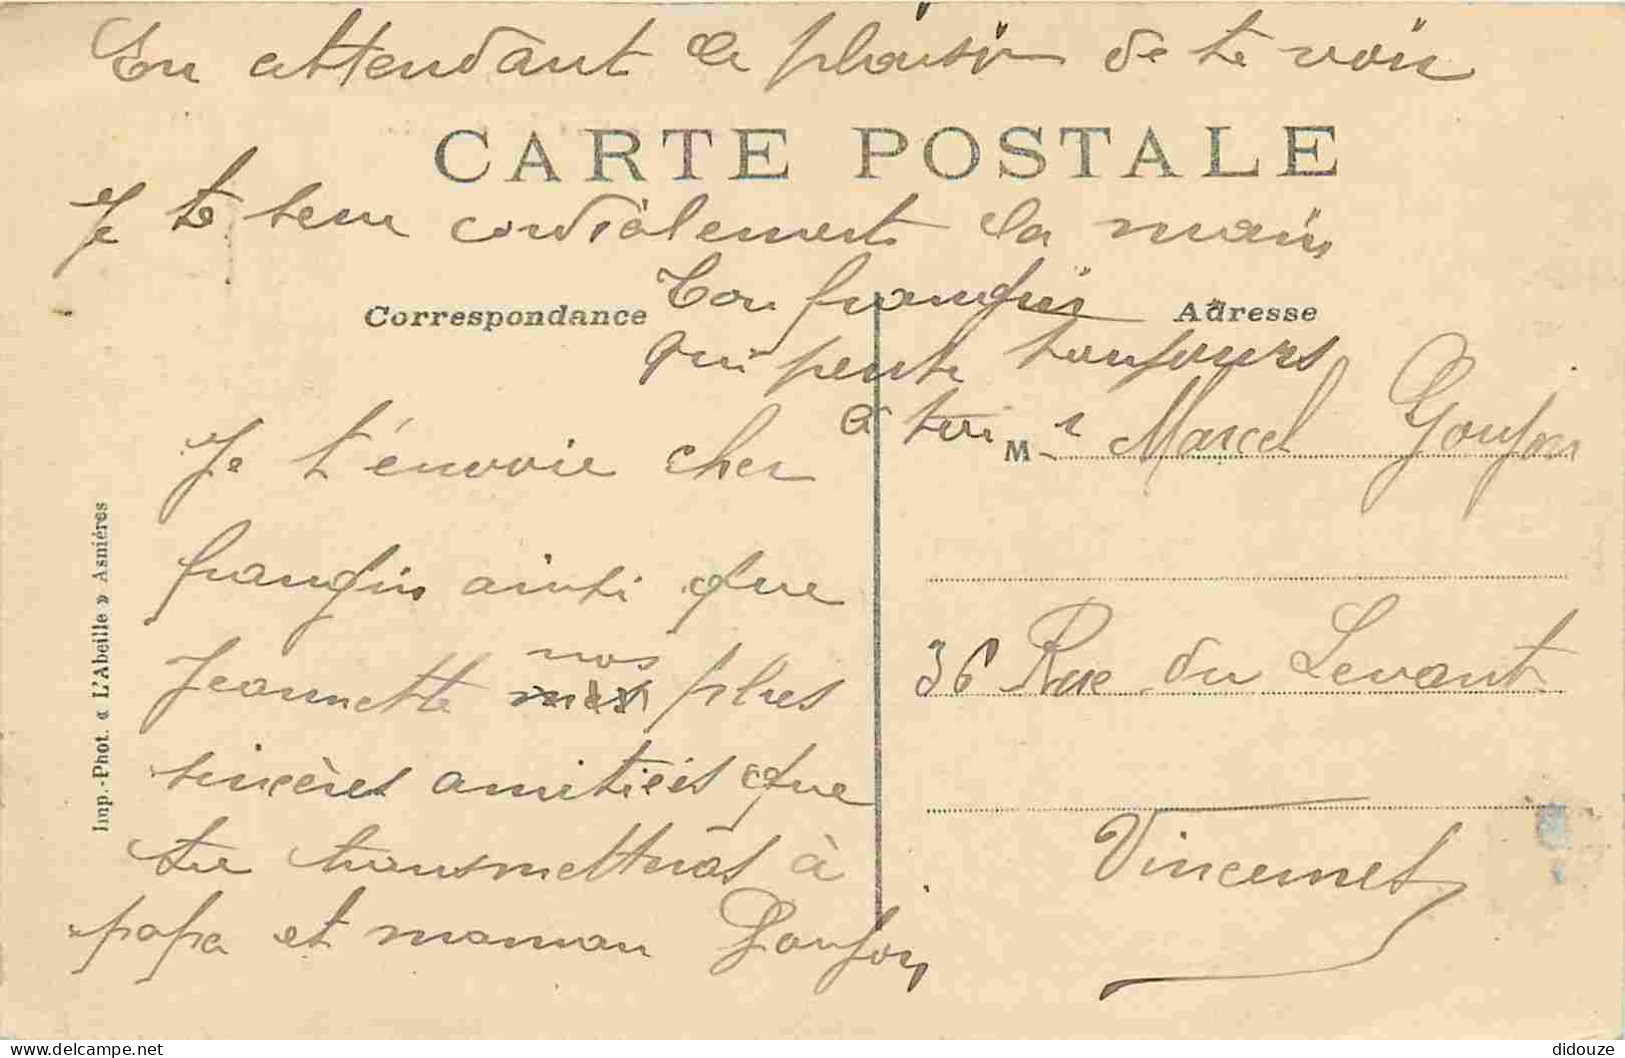 En attendant le plaisir de te voir
CARTE POSTALE
Je te serre cordialement la main
Ton frangin
qui pense toujours
à toi
Correspondance
Adresse
Je t'envoie cher
frangin ainsi que
Jeannette nos plus
sincères amitiés que
tu transmettras à
papa et maman Goujon
M r Marcel Goujon
36 Rue du Levant
Vincennes
Imp.-Phot. « L'Abeille » Asnières
didouze